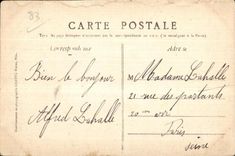 83
CARTE POSTALE
Correspondance
Adresse
Bien le bonjour
Alfred Lahalle
M Madame Lahalle
21 rue des partants
20me
Paris
Seine